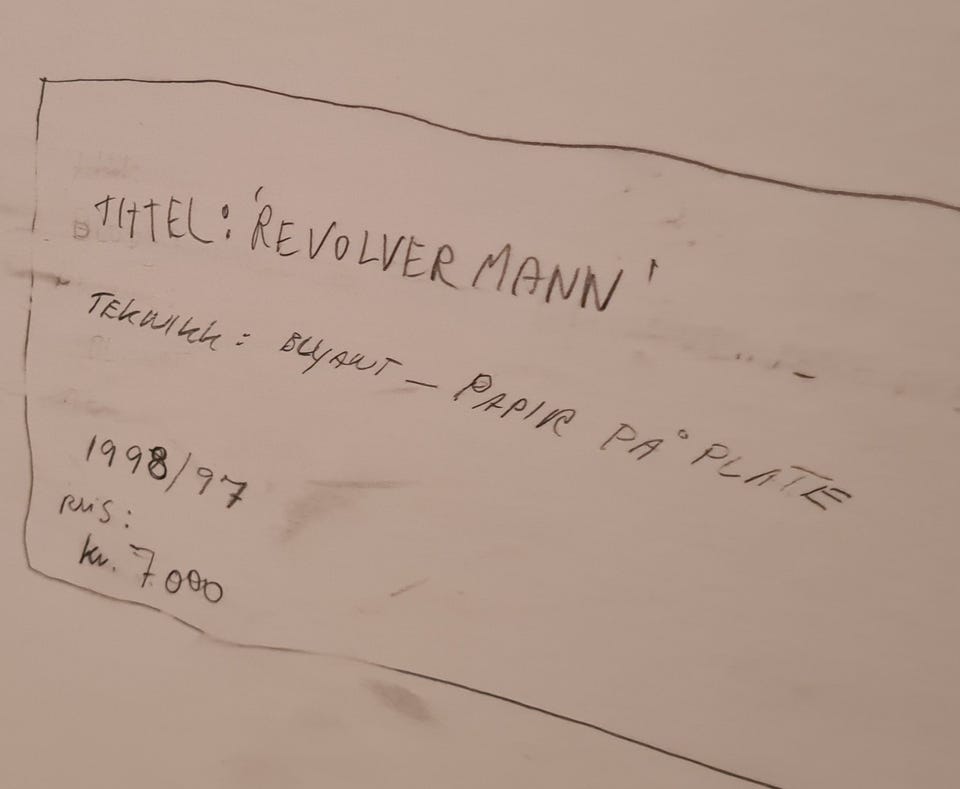 TITTEL: 'REVOLVER MANN'
TEKNIKK: BLYANT — PAPIR PÅ PLATE
1998/97
PRIS:
kr. 7000